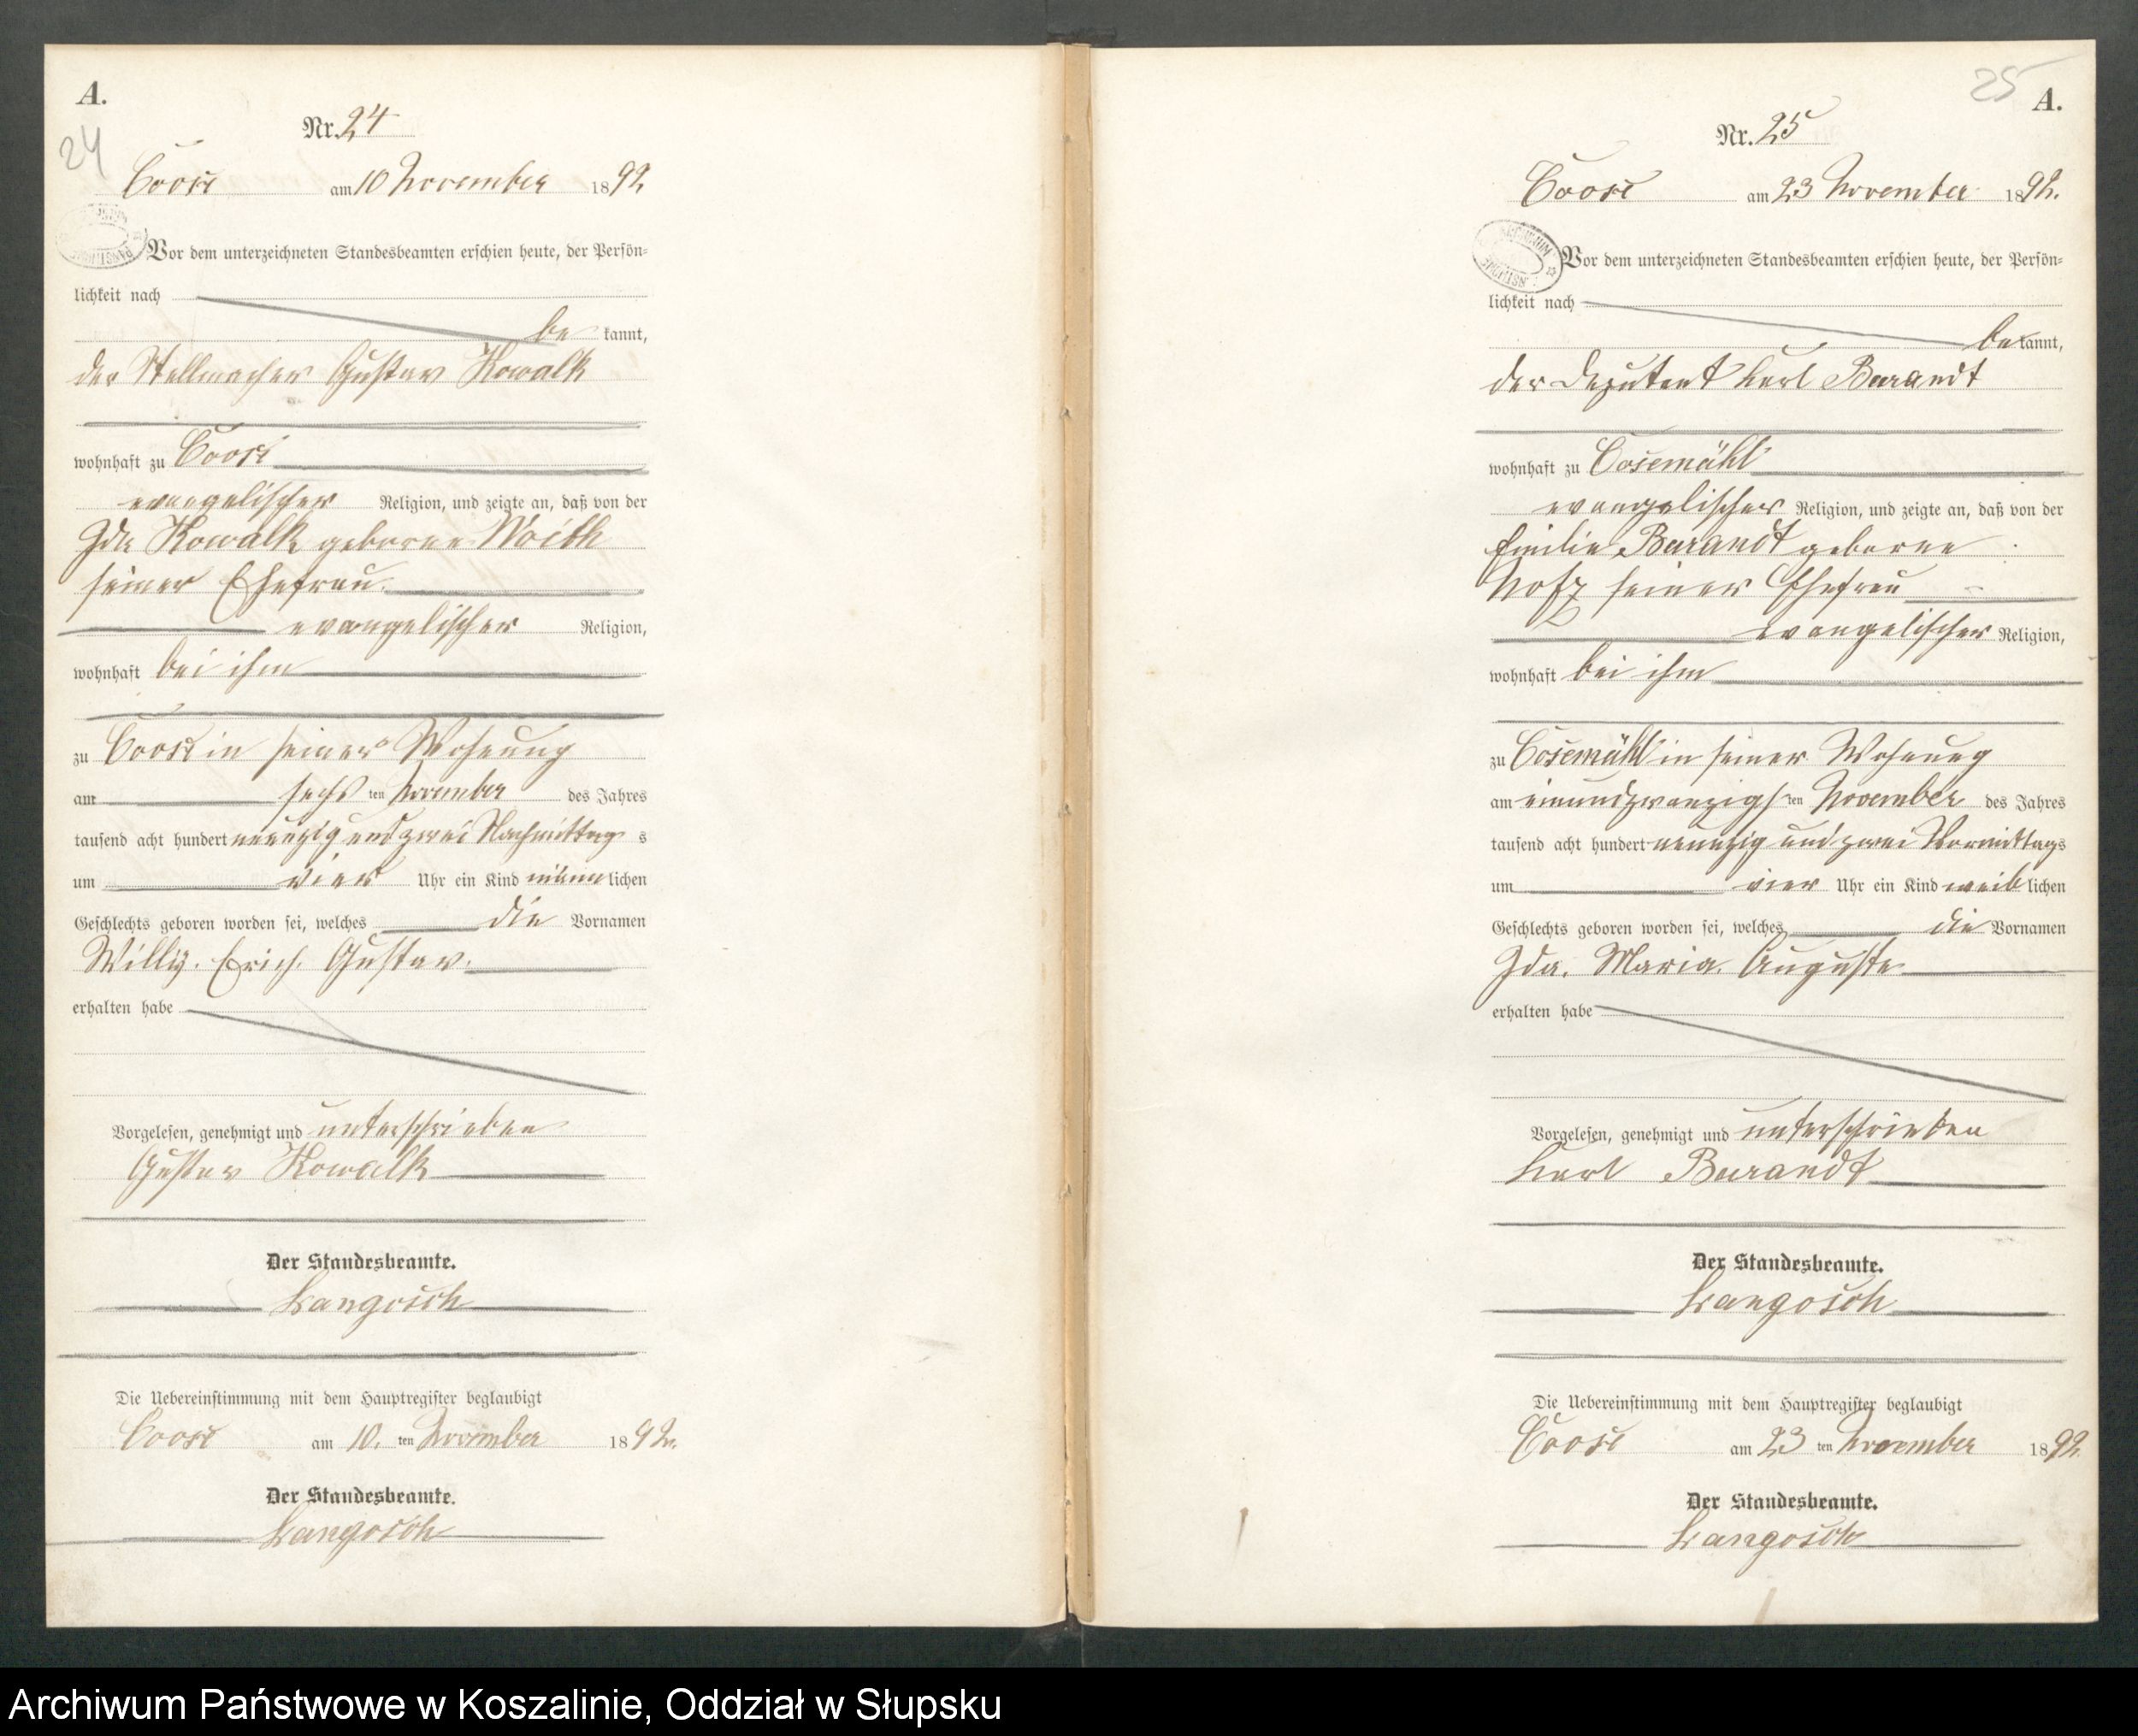 A.
24
Nr. 24
Coose am 10 November 1892
Vor dem unterzeichneten Standesbeamten erschien heute, der Persön-
lichkeit nach
be kannt,
der Stellmacher Gustav Kowalk
wohnhaft zu Coose
evangelischer Religion, und zeigte an, daß von der
Ida Kowalk geborne
seiner Ehefrau
evangelischer Religion,
wohnhaft bei ihm
zu Coose in seiner Wohnung
am sechs ten November des Jahres
tausend acht hundert neunzig und zwei Nachmittag s
um vier Uhr ein Kind männ lichen
Geschlechts geboren worden sei, welches die Vornamen
Willy. Erich. Gustav.
erhalten habe
Vorgelesen, genehmigt und unterschrieben
Gustav Kowalk
Der Standesbeamte.
Langosch
Die Uebereinstimmung mit dem Hauptregister beglaubigt
Coose am 10. ten November 1892.
Der Standesbeamte.
Langosch
25
A.
Nr. 25
Coose am 23 November 1892.
Vor dem unterzeichneten Standesbeamten erschien heute, der Persön-
lichkeit nach
be kannt,
der Deputant Karl Barandt
wohnhaft zu Cosemühl
evangelischer Religion, und zeigte an, daß von der
Emilie Barandt geborne
seiner Ehefrau
evangelischer Religion,
wohnhaft bei ihm
zu Cosemühl in seiner Wohnung
am einundzwanzigs ten November des Jahres
tausend acht hundert neunzig und zwei Vormittags
um vier Uhr ein Kind weib lichen
Geschlechts geboren worden sei, welches die Vornamen
Ida. Maria. Auguste
erhalten habe
Vorgelesen, genehmigt und unterschrieben
Karl Barandt
Der Standesbeamte.
Langosch
Die Uebereinstimmung mit dem Hauptregister beglaubigt
Coose am 23 ten November 1892.
Der Standesbeamte.
Langosch
Archiwum Państwowe w Koszalinie, Oddział w Słupsku